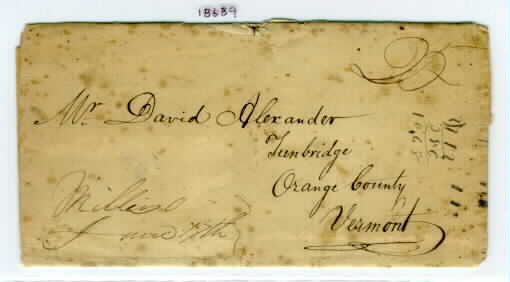 18689
25
Mr. David Alexander
Tunbridge
Orange County
Vermont
June 17th